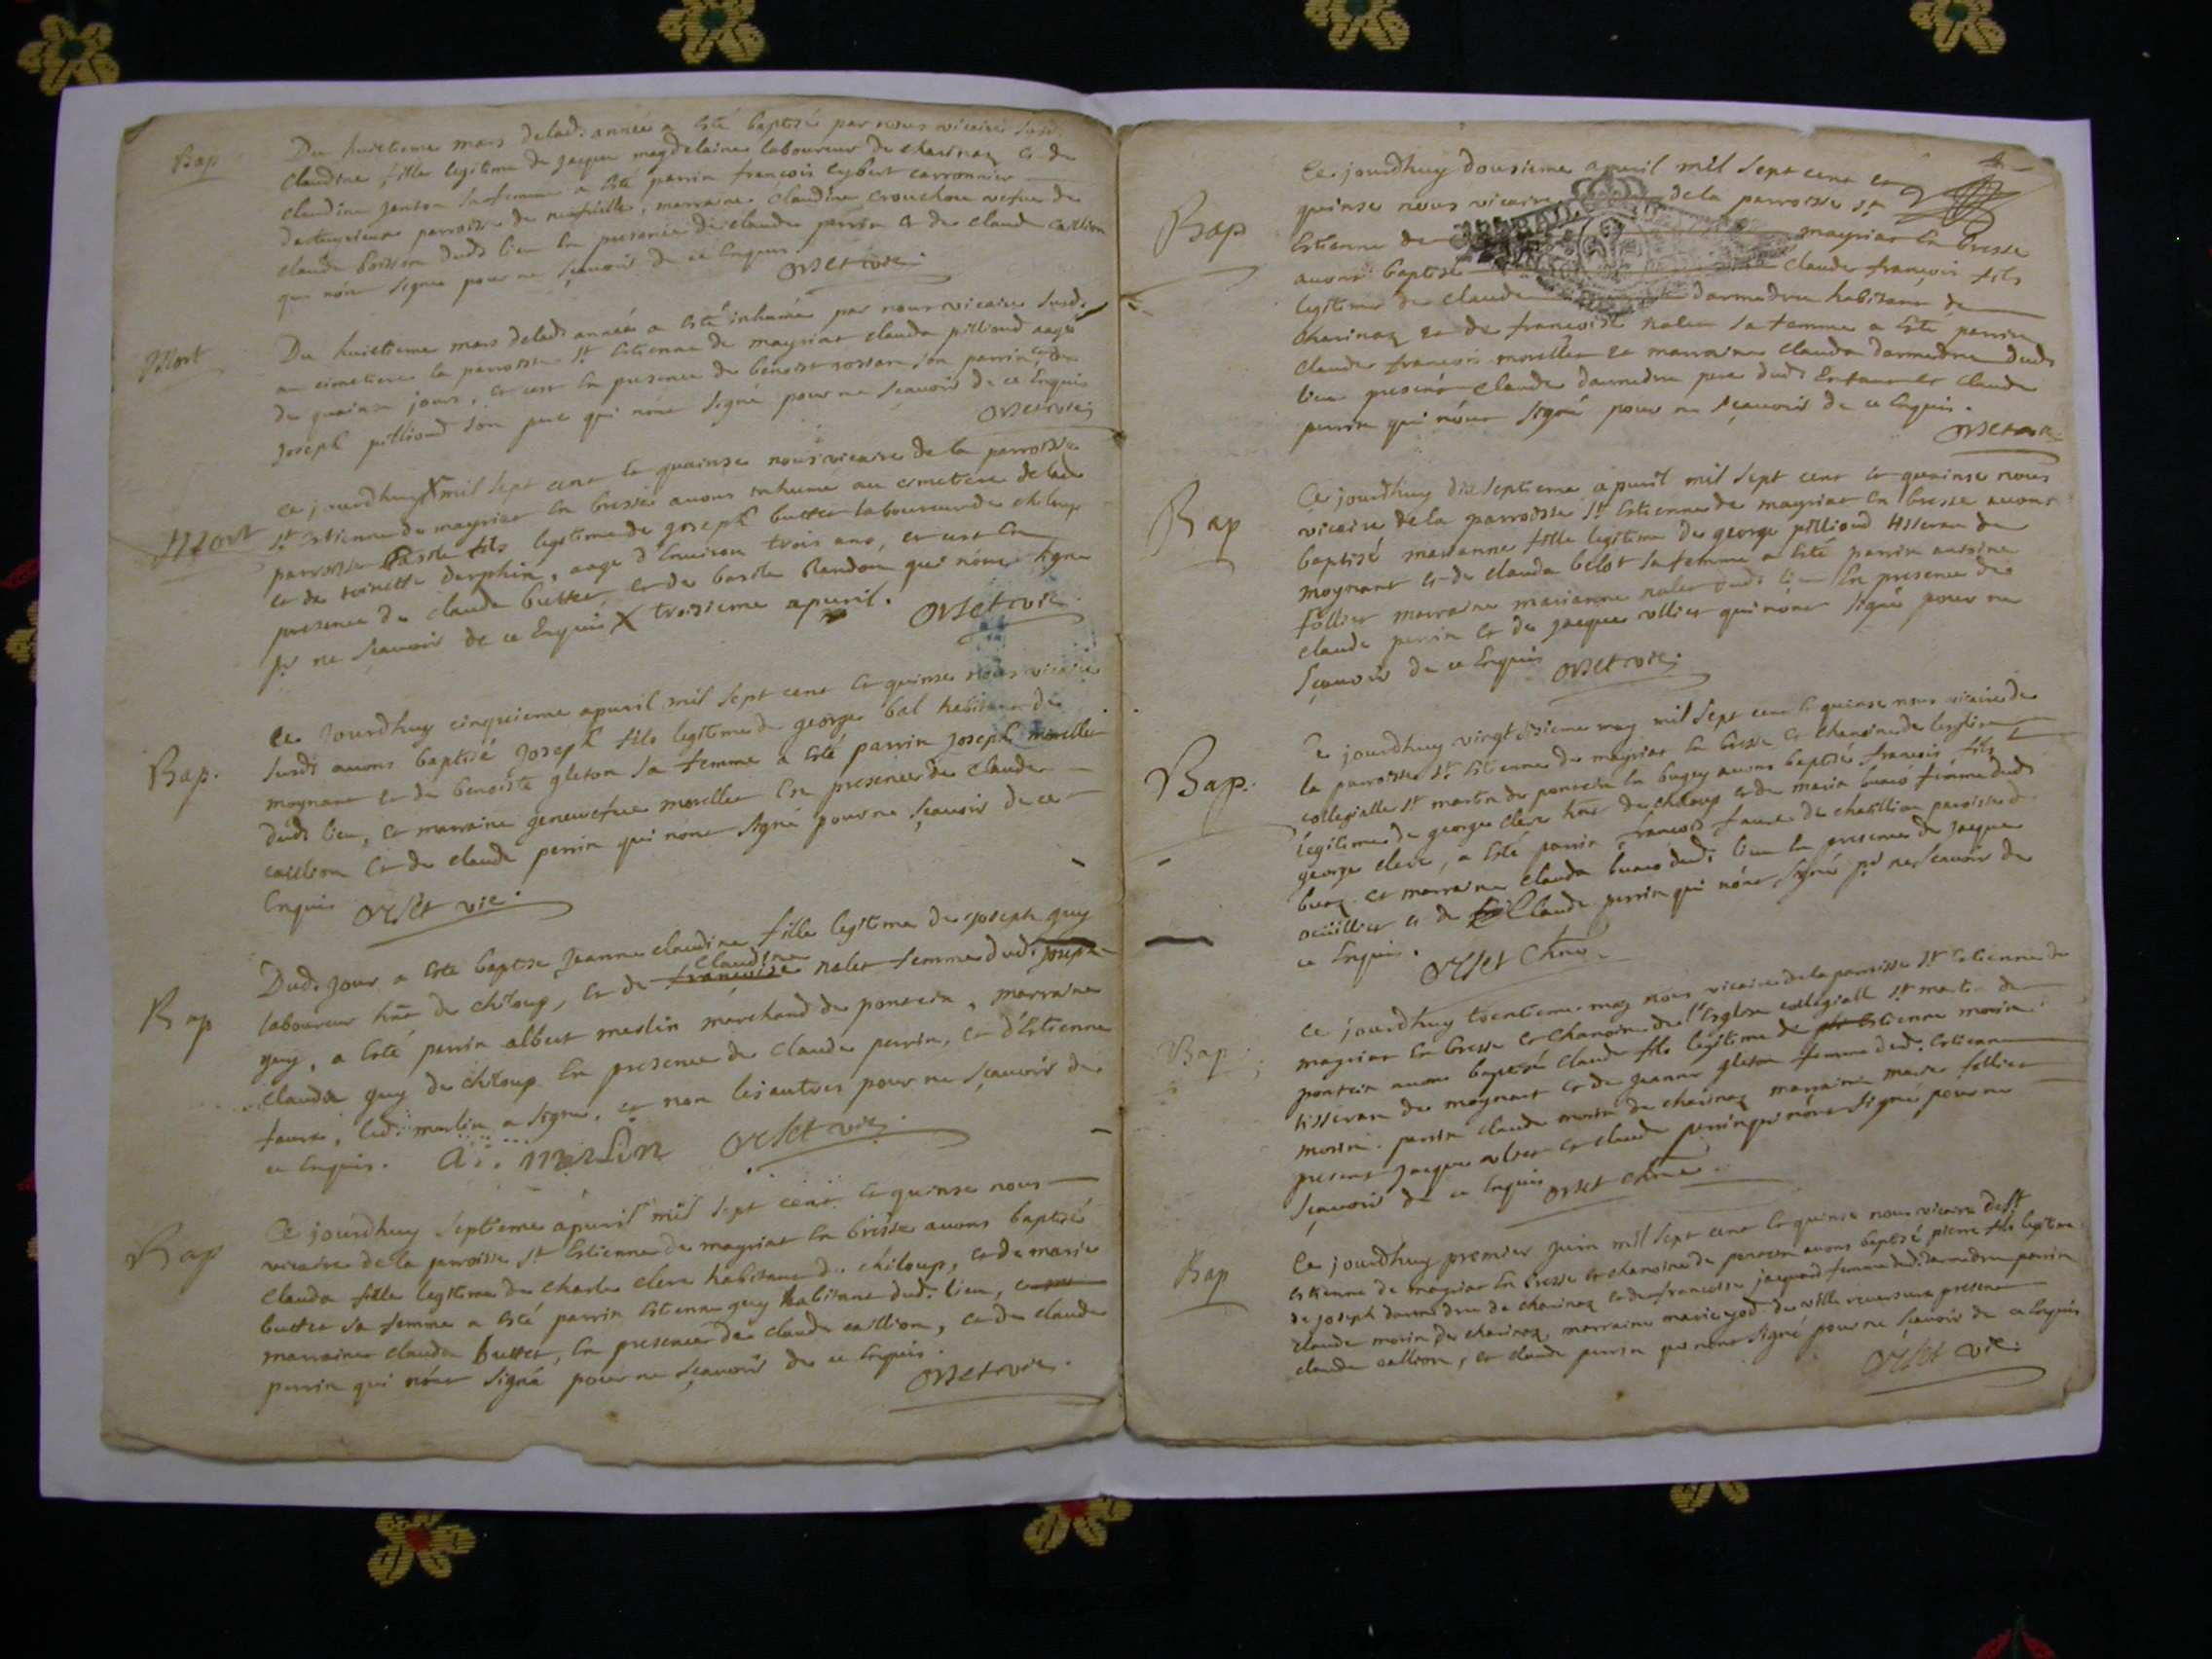 Bap
Du huictieme mars delad. année a esté baptisé par nous vicaire susd.
Claudine fille legitime de Jacque magdelaine laboureur de charinaz et de
claudine janton sa femme a esté parrin françois cybert carronnier
parroisse de marraine claudine crouchon vefue de
claude boisson dud. lieu en presence de claude perrin et de claude caillion
qui nont signé pour ne sçauoir de ce enquis. Orset vic.
Mort
Du huictieme mars delad. année a esté inhumée par nous vicaire susd.
au cimetiere la parroisse st Estienne de mayriat clauda pillioud aagée
de quainse jours, et cest en presence de benoist son parrin, et de
Joseph pillioud son pere qui nont signé pour ne sçauoir de ce enquis
Orset vic.
Mort
Ce jourdhuy X mil sept cent et quainse nous vicaire de la parroisse
st Estienne de mayriat en bresse auons inhumé au cimetiere delad.
parroisse basile fils legitime de Joseph butter laboureur de chiloup
et de toinette derphin, aagé d'enuiron trois ans, et cest en
presence de claude butter, et de basile Randon qui n'ont signé
pr ne sçauoir de ce enquis X troisieme apuril. Orset vic.
Bap.
Ce Jourdhuy cinquieme apuril mil sept cent et quinse nous vicaire
susd. auons baptisé Joseph fils legitime de george bal habitant de
moynant et de benoiste gleton sa femme a esté parrin Joseph morellet
dud. lieu, et marraine geneuefue morellet en presence de claude
caillion et de claude perrin qui n'ont signé pour ne sçauoir de ce
enquis Orset vic.
Bap
Dud. jour a esté baptisé Jeanne claudine fille legitime de Joseph guy
laboureur hnt de chiloup, et de françoise claudine nalet femme dud. joseph
guy, a esté parrin albert merlin marchand de poncin, marraine
clauda guy de chiloup en presence de claude perrin, et d'Estienne
faure, led. merlin a signé, et non les autres pour ne sçauoir de
ce enquis. A. merlin Orset vic.
Bap
Ce jourdhuy septieme apuril mil sept cent et quinse nous
vicaire de la parroisse st Estienne de mayriat en bresse auons baptisé
Clauda fille legitime de charle clerc habitant de chiloup, et de marie
butter sa femme a esté parrin Estienne guy habitant dud. lieu, et
marraine clauda butter, en presence de claude caillion, et de claude
perrin qui n'ont signé pour ne sçauoir de ce enquis.
Orset vic.
Bap
Ce jourdhuy dousieme apuril mil sept cent et
quinse nous vicaire de la parroisse st
Estienne de mayriat en bresse
auons baptisé claude françois fils
legitime de claude darmedru habitant de
charinaz et de françoise nalet sa femme a esté parrin
claude françois morellet et marraine clauda darmedru dud.
lieu present claude darmedru pere dud. enfant et claude
perrin qui n'ont signé pour ne sçauoir de ce enquis.
Orset vic.
Bap
Ce jourdhuy dixseptieme apuril mil sept cent et quainse nous
vicaire de la parroisse st Estienne de mayriat en bresse auons
baptisé marianne fille legitime de george pillioud tisseran de
moynant et de clauda belot sa femme a esté parrin antoine
follier marraine marianne nalet dud. lieu en presence de
claude perrin et de jacque ollier qui n'ont signé pour ne
sçauoir de ce enquis Orset vic.
Bap.
Ce jourdhuy vingt sisieme may mil sept cent et quinse nous vicaire de
la parroisse st Estienne de mayriat en bresse et chanoine de l'esglise
collegialle st martin de poncin en bugey auons baptisé françois fils
legitime de george clerc hnt de chiloup et de maria femme dud.
george clerc, a esté parrin françois faure de chatillion paroisse de
et marraine clauda dud. lieu en presence de Jacque
et de claude perrin qui n'ont signé pr ne sçauoir de
ce enquis. Orset chne.
Bap
Ce jourdhuy trentieme may nous vicaire de la parroisse st Estienne de
mayriat en bresse et chanoine de l'esglise collegiall st martin de
poncin auons baptisé claude fils legitime de Estienne morin
tisseran de moynant et de Jeanne gleton femme dud. Estienne
morin. parrin claude morin de charinaz marraine marie follier
present Jacque ollier et claude perrin qui n'ont signé pour ne
sçauoir de ce enquis Orset chne.
Bap
Ce jourdhuy premier juin mil sept cent et quinse nous vicaire de st
Estienne de mayriat en bresse et chanoine de poncin auons baptisé pierre fils legitime
de joseph darmedru de charinaz et de françoise jacquand femme dud. darmedru parrin
claude morin de charinaz, marraine marie de ville reuersure present
claude caillion, et claude perrin qui n'ont signé pour ne sçauoir de ce enquis
Orset vic.